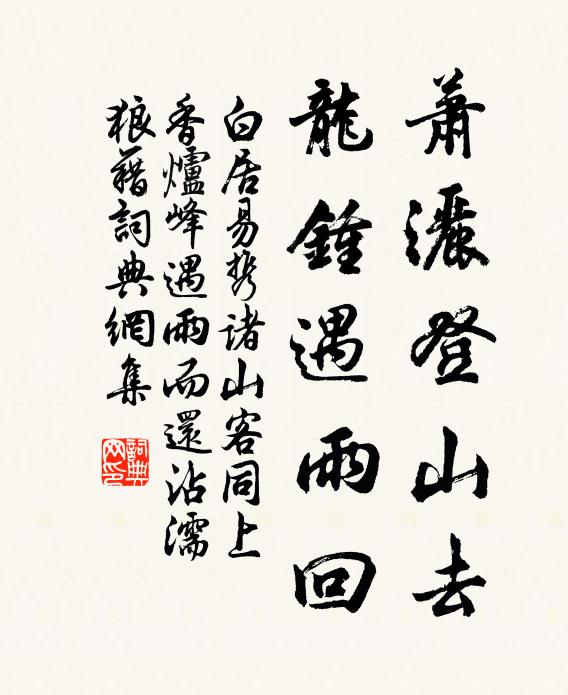 蕭灑登山去
龍鍾遇雨回
白居易携諸山客同上
香爐峰遇雨而還沾濡
狼藉詞典網集
詞典
网印